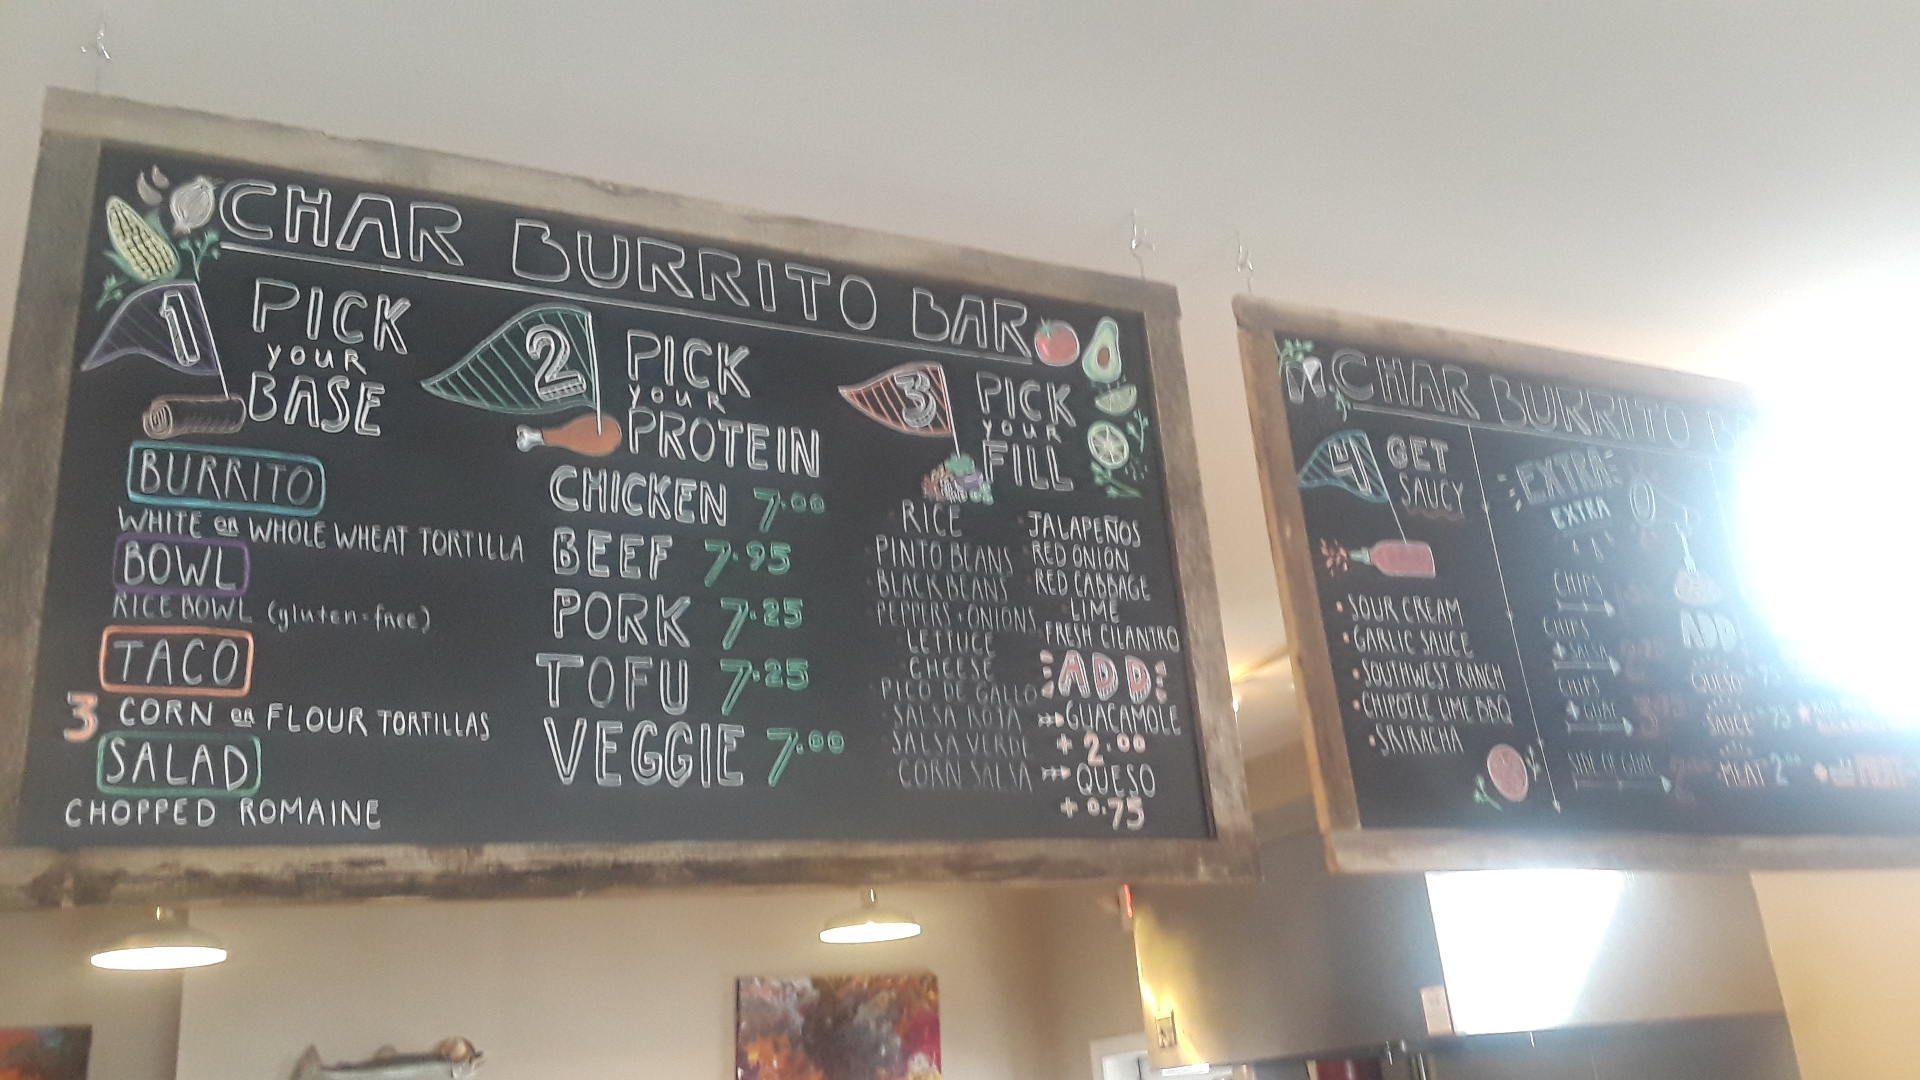 CHAR BURRITO BAR
1 PICK
YOUR
BASE
BURRITO
WHITE OR WHOLE WHEAT TORTILLA
BOWL
RICE BOWL (gluten-free)
TACO
3 CORN OR FLOUR TORTILLAS
SALAD
CHOPPED ROMAINE
2 PICK
YOUR
PROTEIN
CHICKEN 7.00
BEEF 7.95
PORK 7.25
TOFU 7.25
VEGGIE 7.00
3 PICK
YOUR
FILL
RICE
PINTO BEANS
BLACK BEANS
PEPPERS + ONIONS
LETTUCE
CHEESE
PICO DE GALLO
SALSA ROJA
SALSA VERDE
CORN SALSA
JALAPEÑOS
RED ONION
RED CABBAGE
LIME
FRESH CILANTRO
ADD
GUACAMOLE
+ 2.00
QUESO
+ 0.75
CHAR BURRITO
4 GET
SAUCY
SOUR CREAM
GARLIC SAUCE
SOUTHWEST RANCH
CHIPOTLE LIME BBQ
SRIRACHA
EXTRA
EXTRA
CHIPS
CHIPS
+ SALSA
CHIPS
+ GUAC
SIDE OF GUAC
ADD
QUESO
SAUCE
MEAT